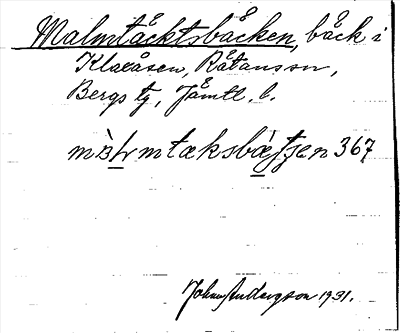 Malmtäcktsbäcken, bäck i
Klaxåsen, Rätanssn,
Bergs tg, Jämtl. l.
mɔ̀ɽmtæksbæ̀ʃʃen 367
Johan Andersson 1931.